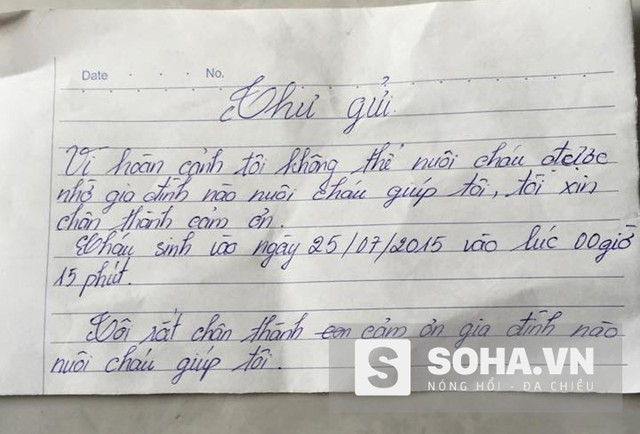 Date . . . No.
Thư gửi.
Vì hoàn cảnh tôi không thể nuôi cháu được
nhờ gia đình nào nuôi cháu giúp tôi, tôi xin
chân thành cảm ơn.
Cháu sinh vào ngày 25/07/2015 vào lúc 00giờ
15 phút.
Tôi rất chân thành con cảm ơn gia đình nào
nuôi cháu giúp tôi.
S SOHA.VN
NÓNG HỔI - ĐA CHIỀU